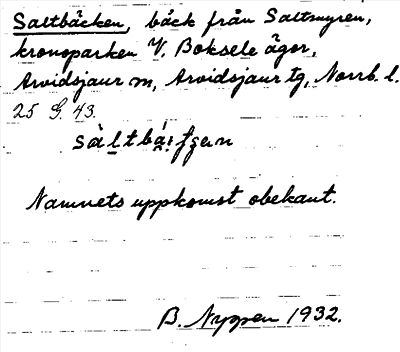 Saltbäcken, bäck från Saltmyren,
kronoparken V. Boksele ägor,
Arvidsjaur sn, Arvidsjaur tg, Norrb. l.
25 G. 43.
Namnets uppkomst obekant.
B. Nyppen 1932.